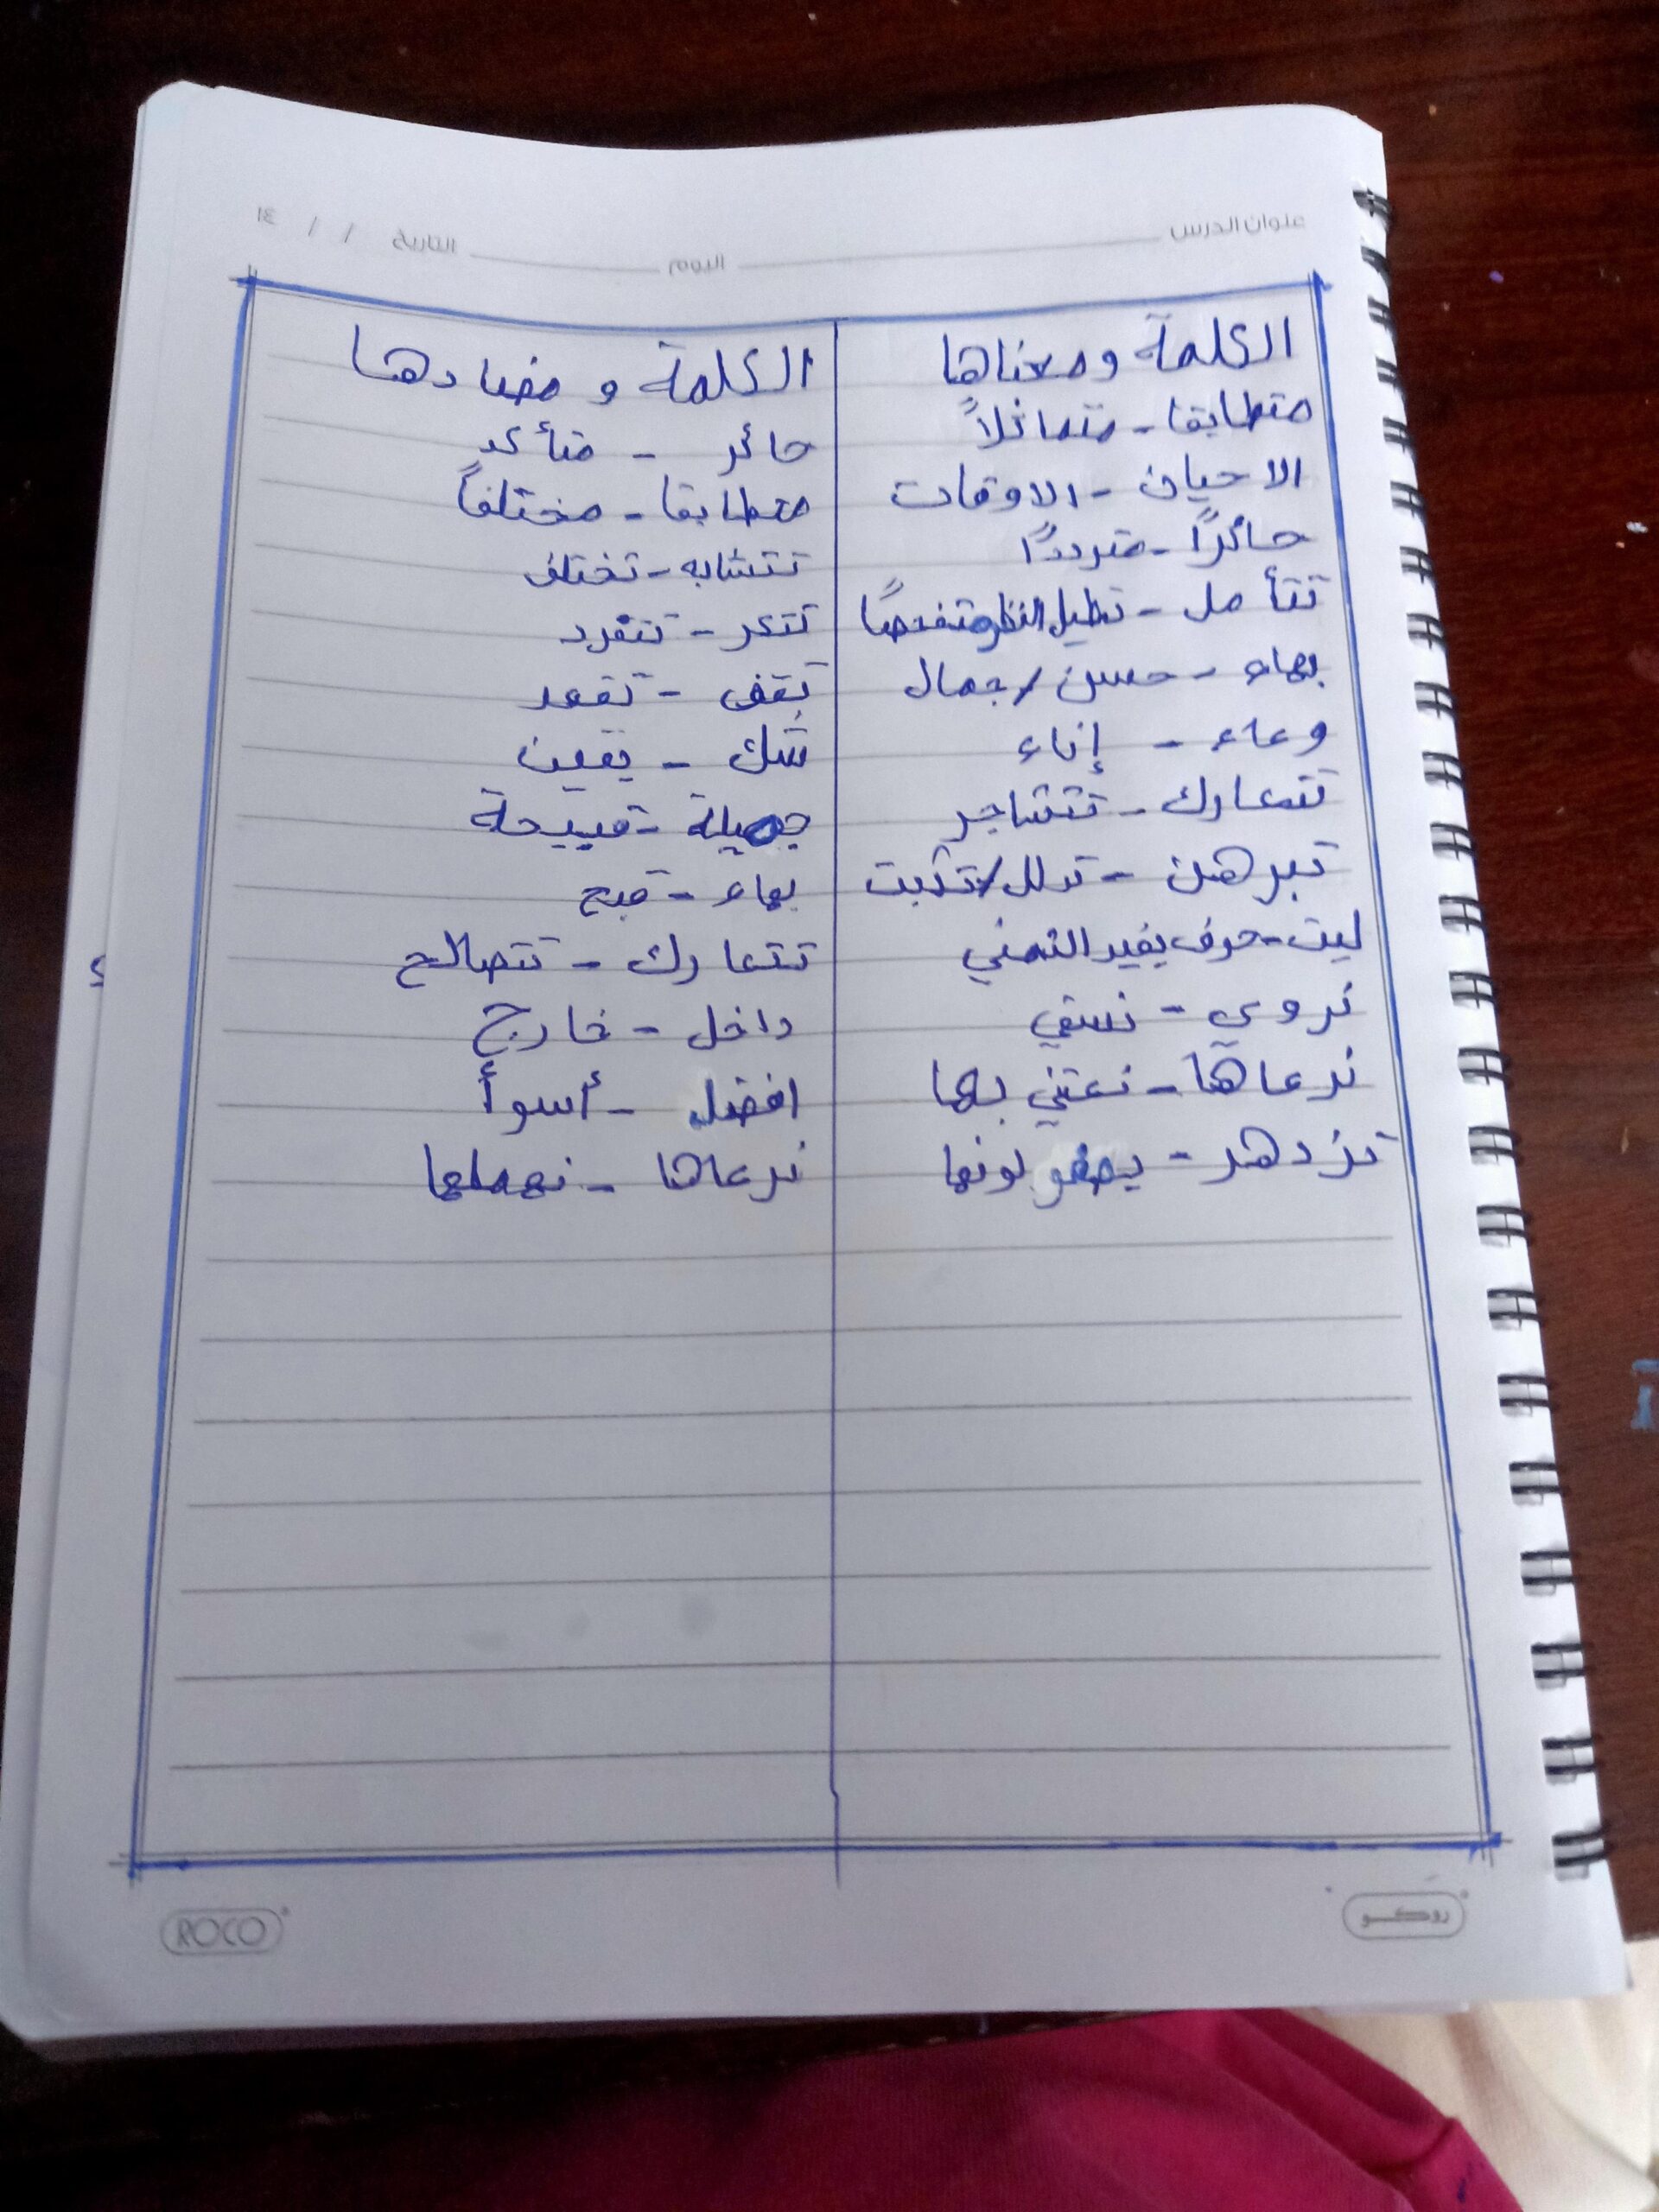 عنوان الدرس اليوم التاريخ / / ١٤
الكلمة ومعناها
متطابقا - متماثلاً
الاحيان - الاوقات
حائرًا - مترددًا
تتأمل - تطيل النظر متفحصًا
بهاء - حسن / جمال
وعاء - إناء
تتعارك - تتشاجر
تبرهن - تدلل / تثبت
ليت - حرف يفيد التمني
نروي - نسقي
نرعاها - نعتني بها
تزدهر - يصفو لونها
الكلمة و مضادها
حائر - متأكد
متطابقا - مختلفاً
تتشابه - تختلف
تتفرد
تقف - تقعد
شك - يقين
جميلة - قبيحة
بهاء - قبح
تتعارك - تتصالح
داخل - خارج
افضل - أسوأ
نرعاها - نهملها
ROCO
روكو